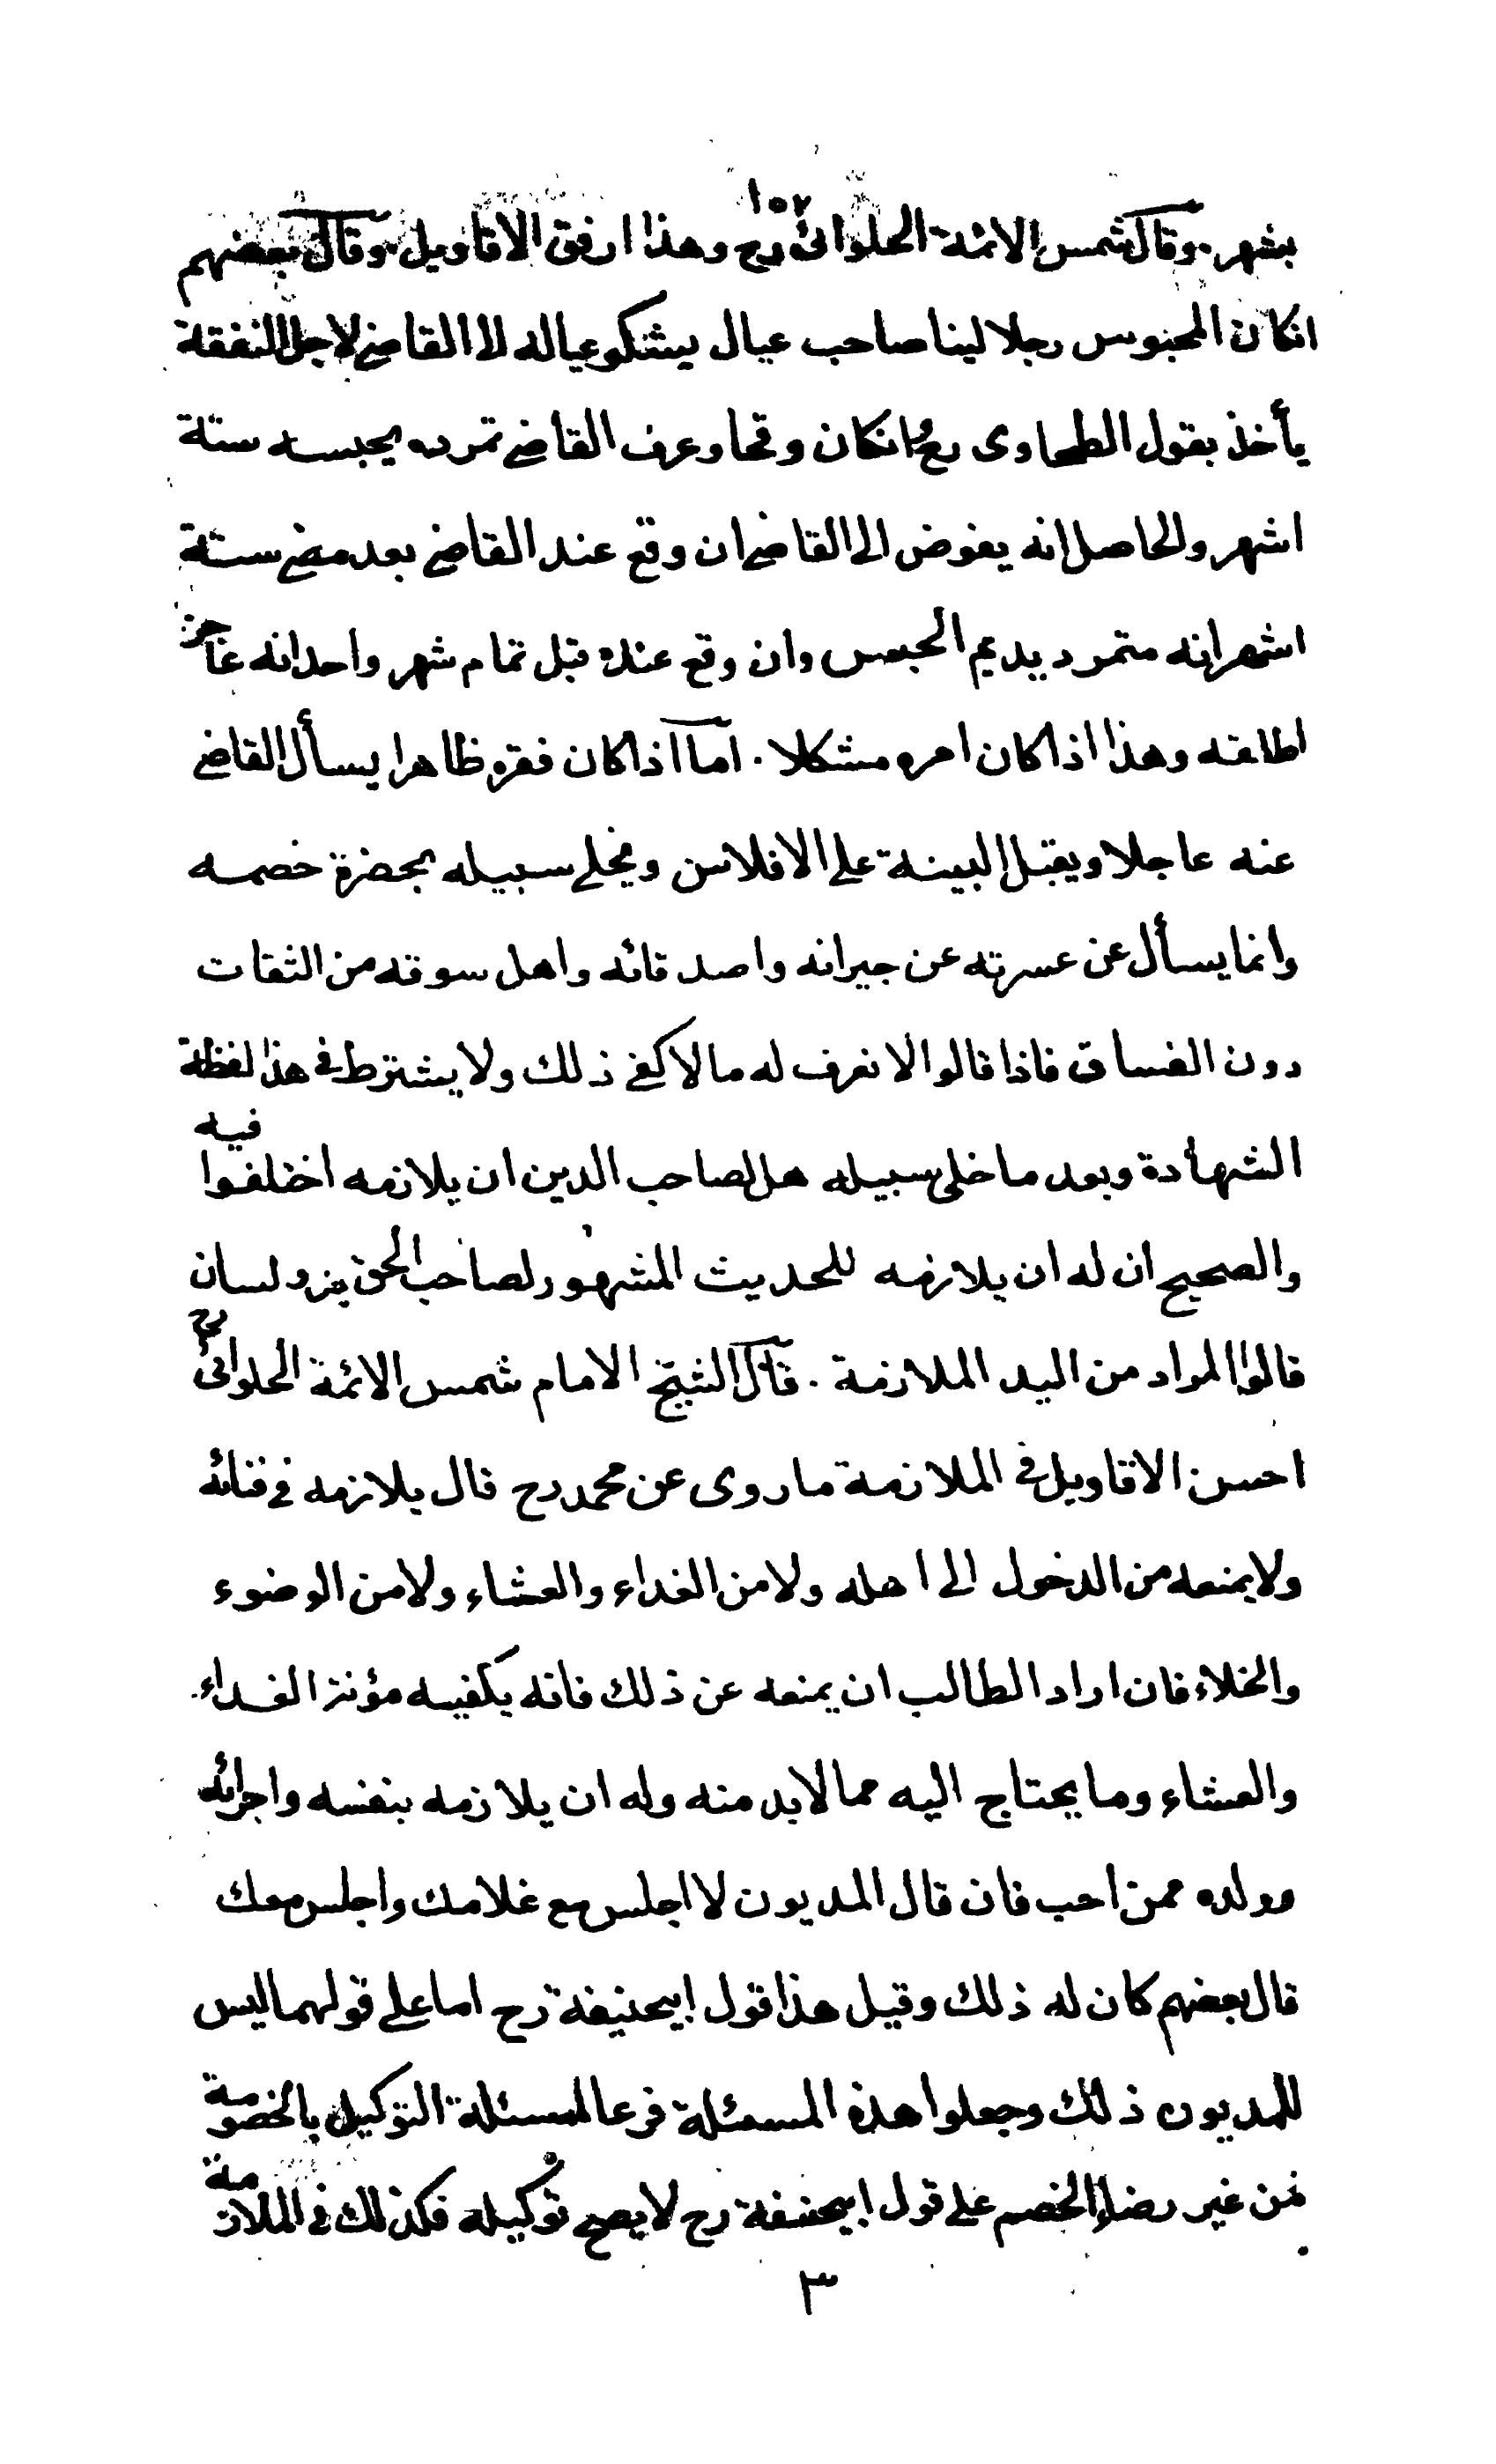 ١٥٢
بشهر . وقال شمس الائمة الحلوائى رح وهذا ارفق الاقاويل . وقال بعضهم
انكان المحبوس رجلا لينا صاحب عيال يشكو عياله الى القاضى لاجل النفقة
يأخذ بقول الطحاوى رح وانكان وقحا وعرف القاضى تمرده يحبسه ستة
اشهر والحاصل انه يفوض الى القاضى ان وقع عند القاضى بعد مضى ستة
اشهر انه متمرد يديم الحبس وان وقع عنده قبل تمام شهر واحد انه عاجز
اطلقه وهذا اذا كان امره مشكلا . اما اذا كان فقره ظاهرا يسأل القاضى
عنه عاجلا ويقبل البينة على الافلاس ويخلى سبيله بحضرة خصمه
وانما يسأل عن عسرته عن جيرانه واصدقائه واهل سوقه من الثقات
دون الفساق فاذا قالوا لا نعرف له مالا كفى ذلك ولا يشترط فى هذا لفظة
الشهادة وبعد ما خلى سبيله هل لصاحب الدين ان يلازمه اختلفوا فيه
والصحيح ان له ان يلازمه للحديث المشهور لصاحب الحق يد ولسان
قالوا المراد من اليد الملازمة . قال الشيخ الامام شمس الائمة الحلوائى رح
احسن الاقاويل فى الملازمة ما روى عن محمد رح قال يلازمه فى فنائه
ولا يمنعه من الدخول الى اهله ولا من الغداء والعشاء ولا من الوضوء
والخلاء فان اراد الطالب ان يمنعه عن ذلك فانه يكفيه مؤنة الغداء
والعشاء وما يحتاج اليه مما لابد منه وله ان يلازمه بنفسه واجرائه
وولده ممن احب فان قال المديون لا اجلس مع غلامك واجلس معك
قال بعضهم كان له ذلك وقيل هذا قول ابيحنيفة رح اما على قولهما ليس
للمديون ذلك وجعلوا هذه المسئلة فرعا لمسئلة التوكيل بالخصومة
من غير رضا الخصم على قول ابيحنيفة رح لا يصح توكيله فكذلك فى الملازمة
٣